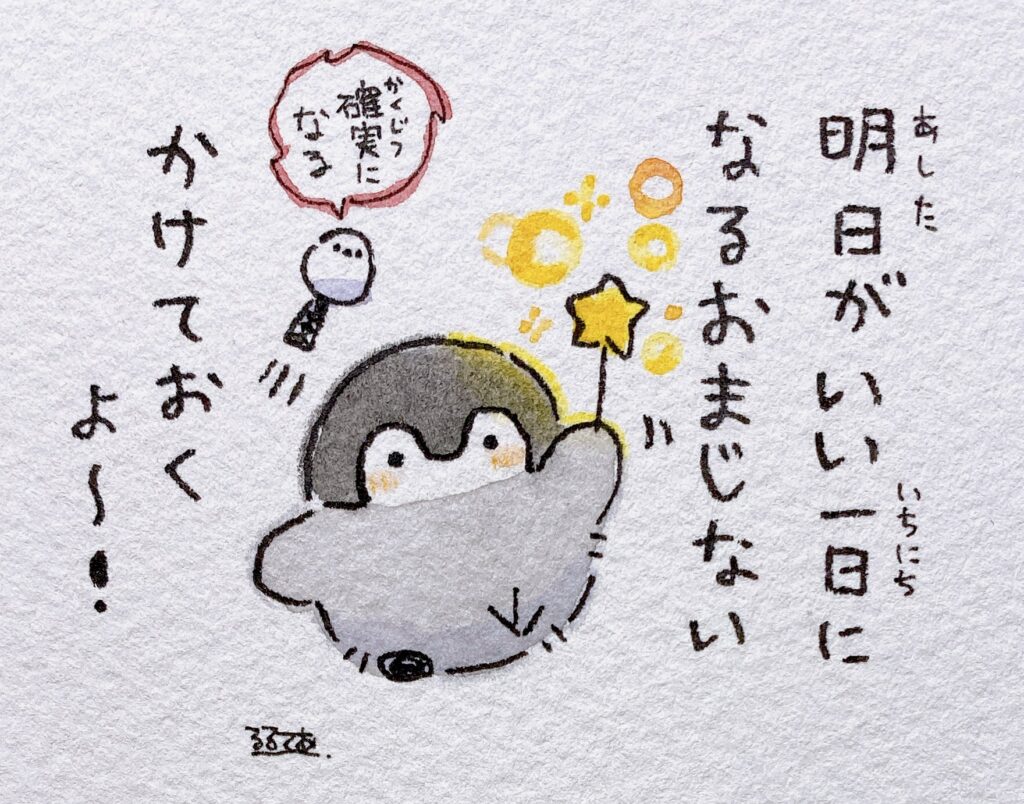 明日がいい一日に
あした
いちにち
なるおまじない
かけておく
よ〜!
確実に
かくじつ
なる
るるてあ.